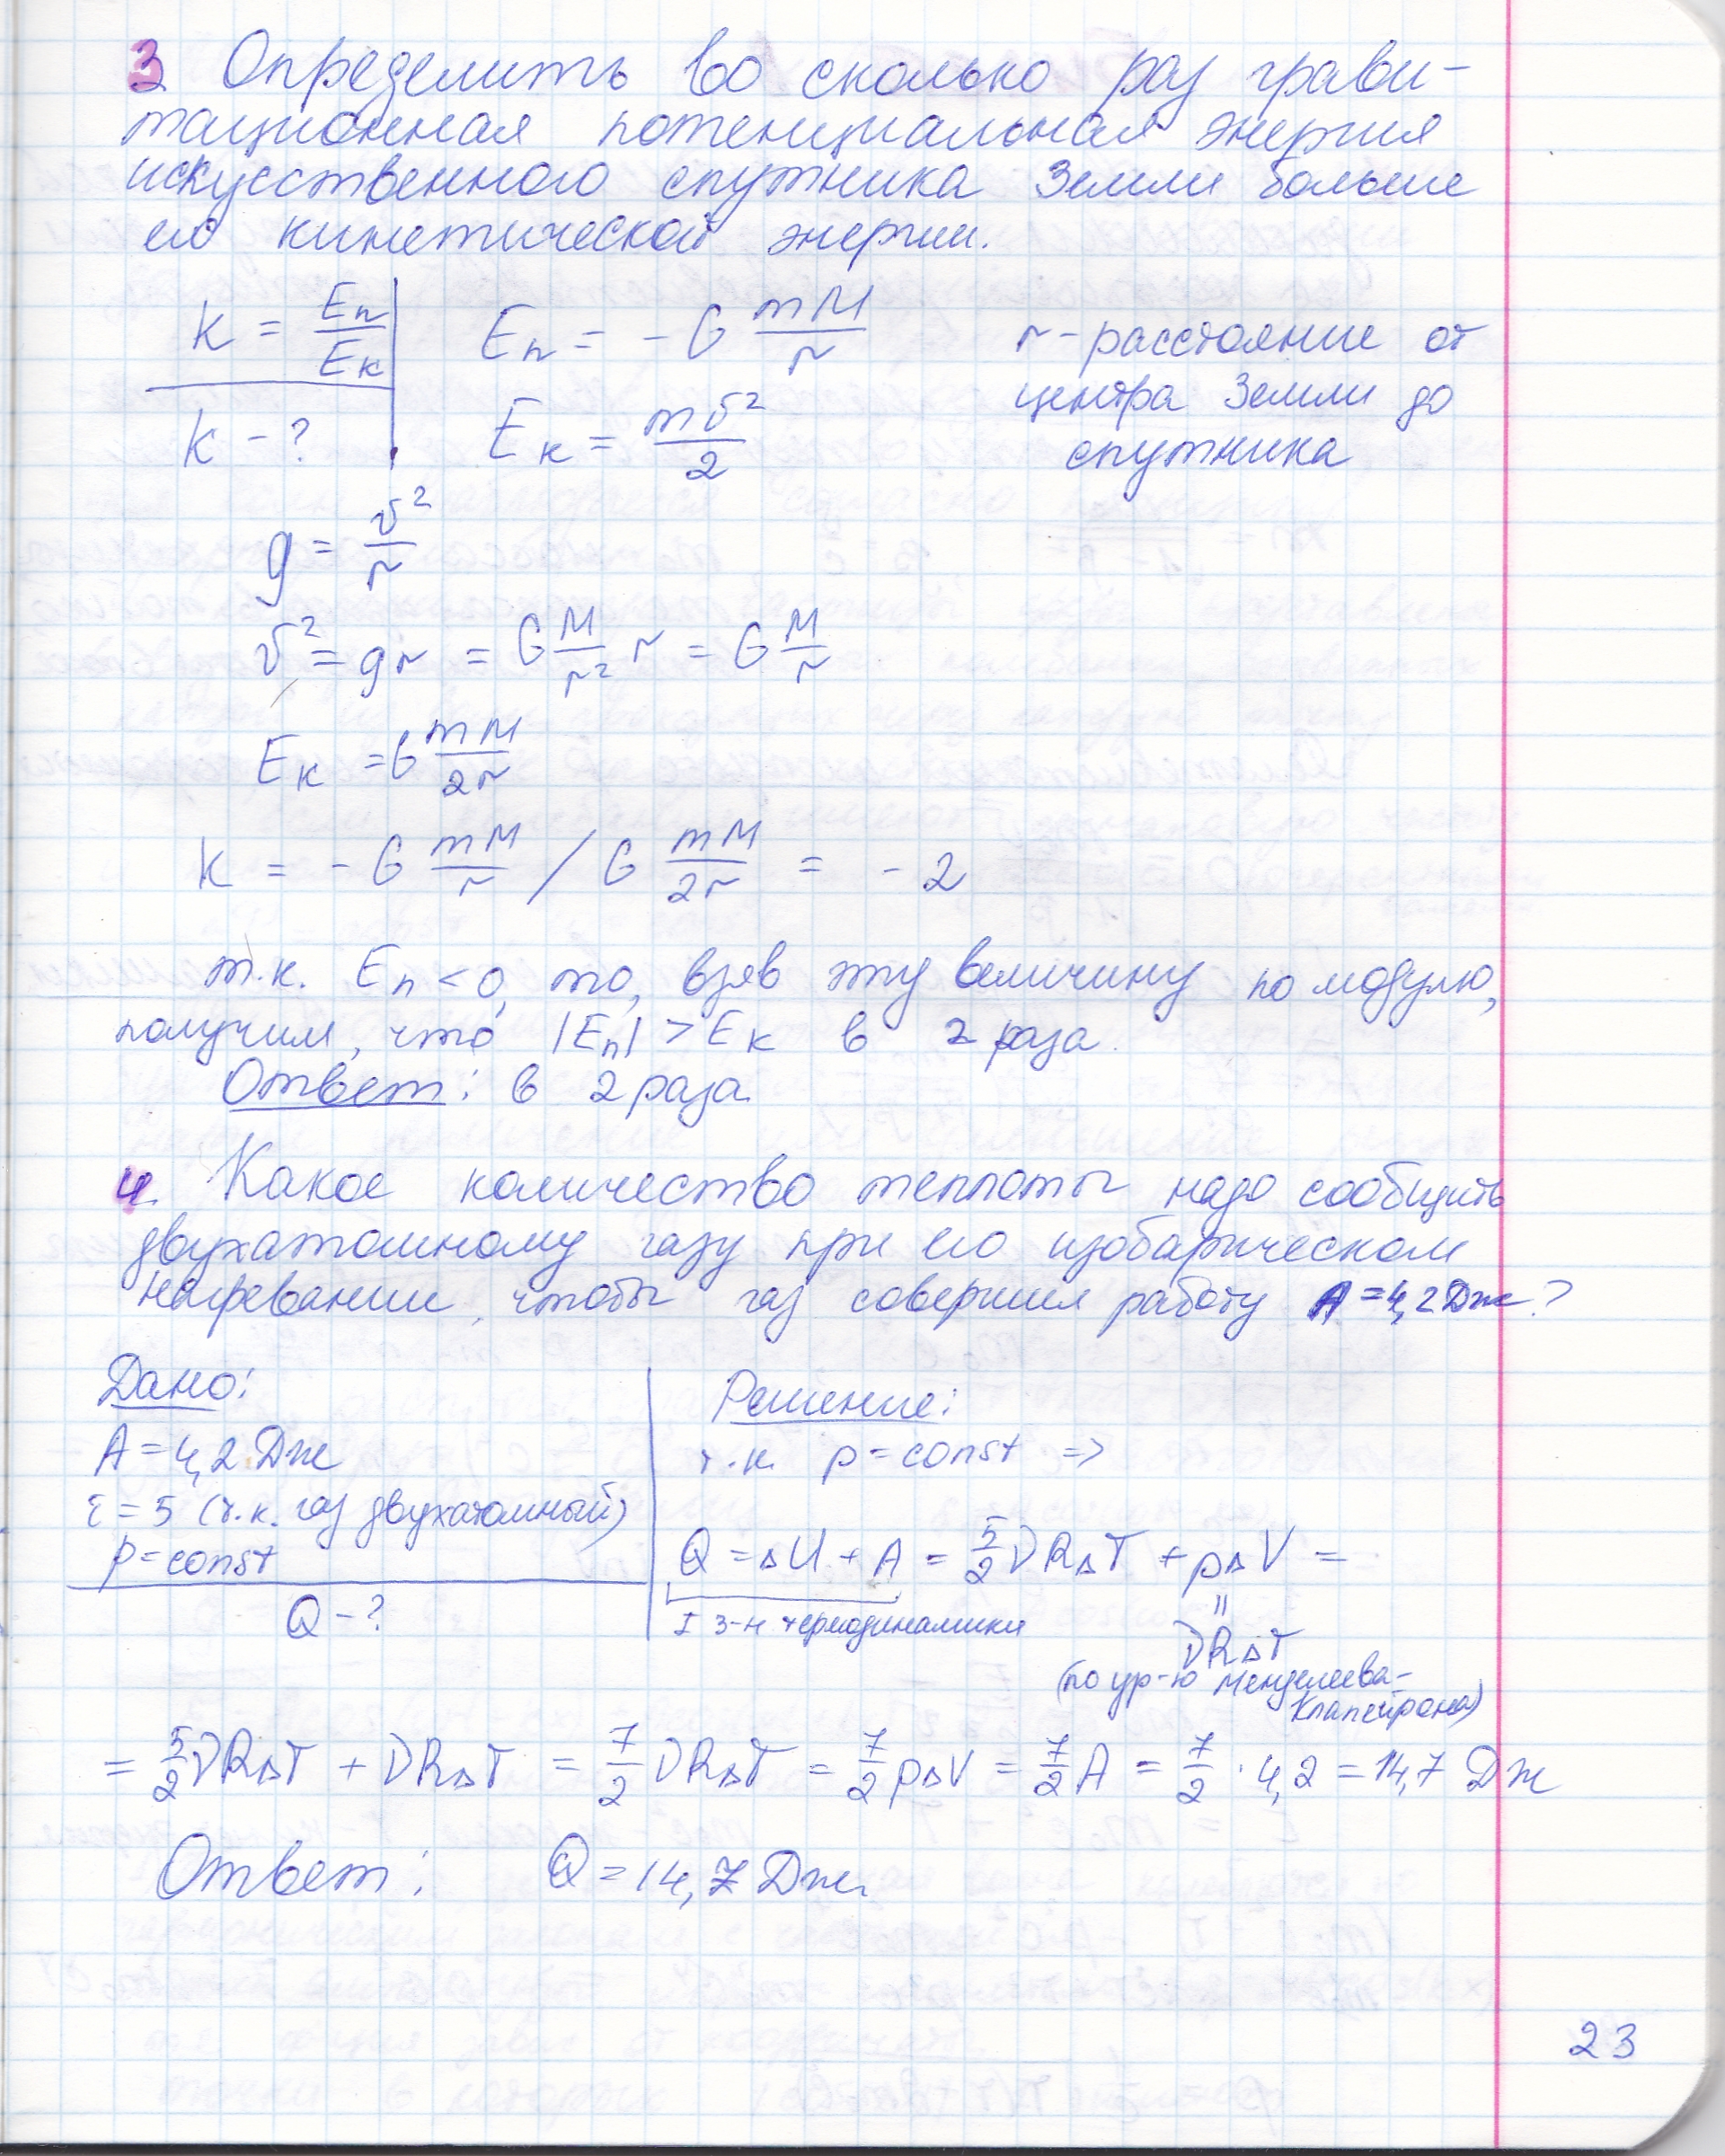 3. Определить во сколько раз грави-
тационная потенциальная энергия
искусственного спутника Земли больше
его кинетической энергии.
k = Eп/Eк
k - ?
Eп = - G mM/r
Eк = mv²/2
r - расстояние от
центра Земли до
спутника
g = v²/r
v² = gr = G M/r² r = G M/r
Eк = G mM/2r
k = - G mM/r / G mM/2r = - 2
т.к. Eп < 0, то, взяв эту величину по модулю,
получим, что |Eп| > Eк в 2 раза.
Ответ: в 2 раза
4. Какое количество теплоты надо сообщить
двухатомному газу при его изобарическом
нагревании, чтобы газ совершил работу A = 4,2 Дж?
Дано:
A = 4,2 Дж
i = 5 (т.к. газ двухатомный)
p = const
Q - ?
Решение:
т.к. p = const =>
Q = ΔU + A = 5/2 νRΔT + pΔV =
I з-н термодинамики
॥
νRΔT
(по ур-ю Менделеева-
Клапейрона)
= 5/2 νRΔT + νRΔT = 7/2 νRΔT = 7/2 pΔV = 7/2 A = 7/2 · 4,2 = 14,7 Дж
Ответ: Q = 14,7 Дж
23